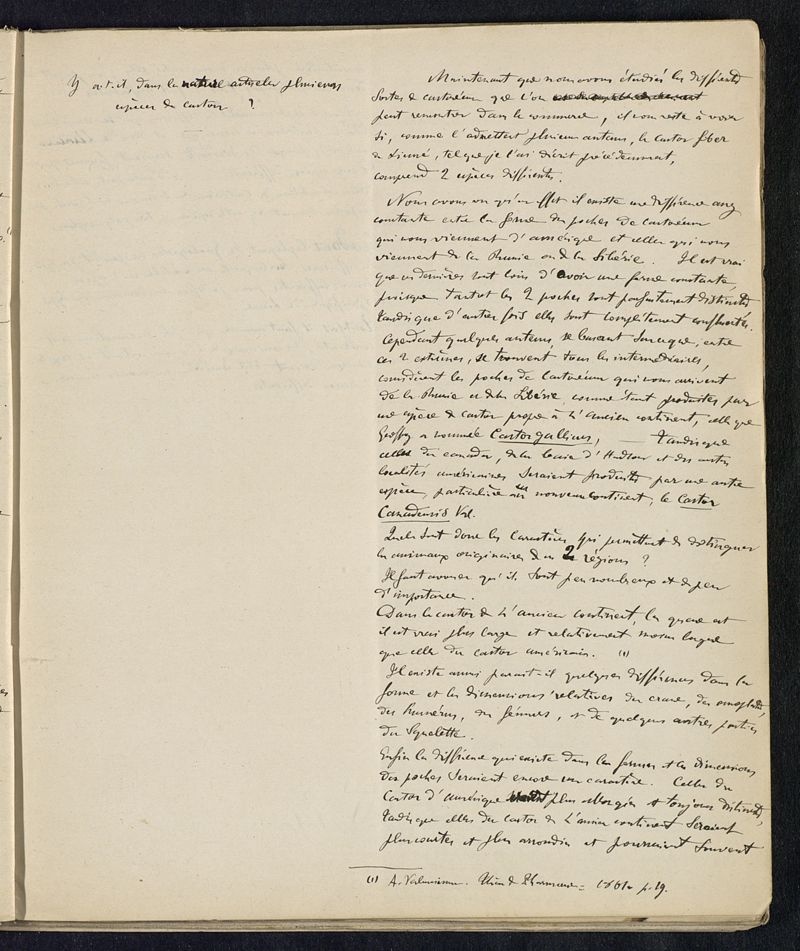 Y a-t-il, dans la nature actuelle plusieurs
espèces de castors ?
Maintenant que nous avons étudié les différentes
sortes de castoréum que l'on
peut rencontrer dans le commerce, il nous reste à voir
si, comme l'admettent plusieurs auteurs, le castor fiber
de Linné, tel que je l'ai décrit précédemment,
comprend 2 espèces différentes.
Nous avons vu qu'en effet il existe une différence assez
constante entre la forme des poches de castoréum
qui nous viennent d'amérique et celles qui nous
viennent de la Russie ou de la Sibérie. Il est vrai
que ces dernières sont loin d'avoir une forme constante
puisque tantôt les 2 poches sont parfaitement distinctes
tandis que d'autres fois elles sont complètement confluentes.
Cependant quelques auteurs, se basant sur ce que, entre
ces 2 extrêmes, se trouvent tous les intermédiaires,
considèrent les poches de castoréum qui nous arrivent
de la Russie et de la Sibérie comme étant produites par
une espèce de castor propre à l'ancien continent, celle que
Geoffroy a nommée Castor gallicus, tandis que
celles du canada, de la baie d'Hudson et des autres
localités américaines seraient produites par une autre
espèce, particulière au nouveau continent, le Castor
Canadensis
Quels sont donc les caractères qui permettent de distinguer
les animaux originaires de ces 2 régions ?
Il faut avouer qu'ils sont peu nombreux et de peu
d'importance.
Dans le castor de l'ancien continent, la queue est
il est vrai plus large et relativement moins longue
que celle du castor américain. (1)
Il existe aussi parait-il quelques différences dans la
forme et les dimensions relatives du crane, des omoplates,
des humérus, des fémurs, et de quelques autres parties
du squelette.
Enfin la différence qui existe dans les formes et les dimensions
des poches seraient encore un caractère. Celles du
Castor d'amérique plus allongées et toujours distinctes,
tandis que celles du castor de l'ancien continent seraient
plus courtes et plus arrondies et pourraient souvent
(1) A. p. 19.